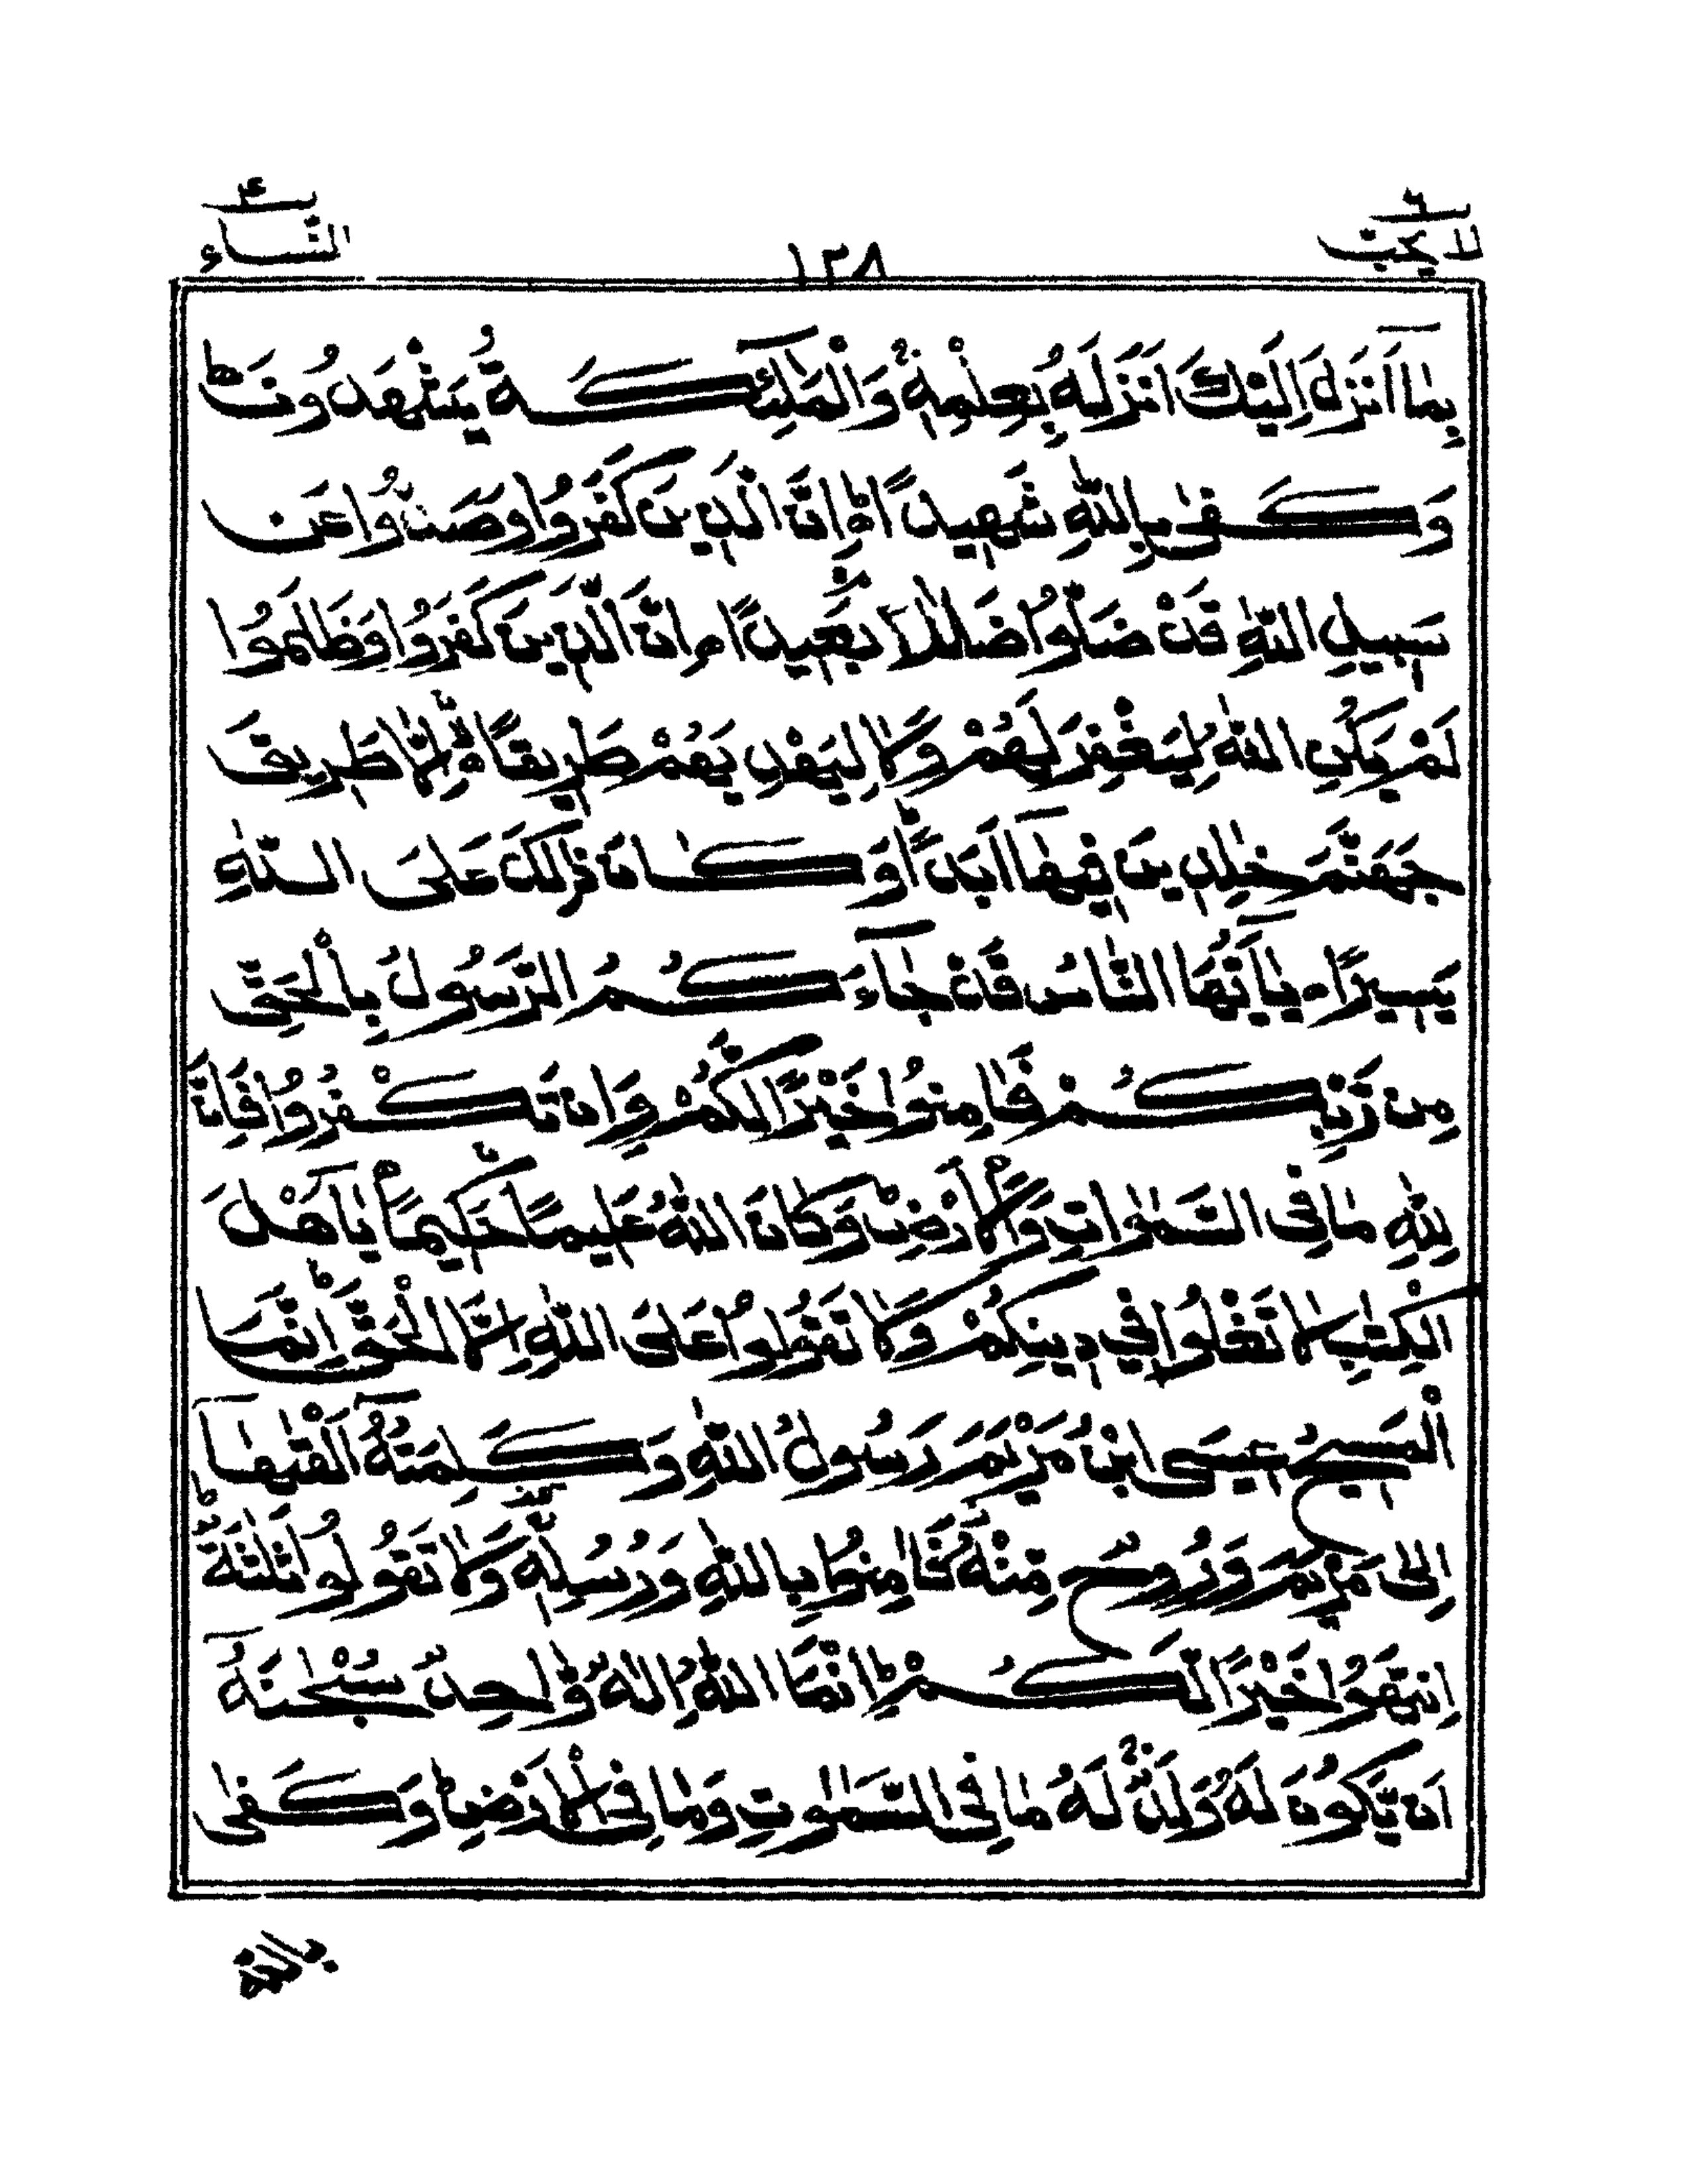 لا يحب ٦
١٢٨
النساء ۴
بِمَآ اَنْزَلَ اِلَيْكَ اَنْزَلَهٗ بِعِلْمِهٖ ۚ وَالْمَلٰٓئِكَةُ يَشْهَدُوْنَ ؕ
وَكَفٰى بِاللّٰهِ شَهِيْدًا ؕ اِنَّ الَّذِيْنَ كَفَرُوْا وَصَدُّوْا عَنْ
سَبِيْلِ اللّٰهِ قَدْ ضَلُّوْا ضَلٰلًاۢ بَعِيْدًا اِنَّ الَّذِيْنَ كَفَرُوْا وَظَلَمُوْا
لَمْ يَكُنِ اللّٰهُ لِيَغْفِرَ لَهُمْ وَلَا لِيَهْدِيَهُمْ طَرِيْقًا ۙ اِلَّا طَرِيْقَ
جَهَنَّمَ خٰلِدِيْنَ فِيْهَآ اَبَدًا ؕ وَكَانَ ذٰلِكَ عَلَى اللّٰهِ
يَسِيْرًا يٰٓاَيُّهَا النَّاسُ قَدْ جَآءَكُمُ الرَّسُوْلُ بِالْحَقِّ
مِنْ رَّبِّكُمْ فَاٰمِنُوْا خَيْرًا لَّكُمْ ؕ وَاِنْ تَكْفُرُوْا فَاِنَّ
لِلّٰهِ مَا فِى السَّمٰوٰتِ وَالْاَرْضِ ؕ وَكَانَ اللّٰهُ عَلِيْمًا حَكِيْمًا يٰٓاَهْلَ
الْكِتٰبِ لَا تَغْلُوْا فِيْ دِيْنِكُمْ وَلَا تَقُوْلُوْا عَلَى اللّٰهِ اِلَّا الْحَقَّ ؕ اِنَّمَا
الْمَسِيْحُ عِيْسَى ابْنُ مَرْيَمَ رَسُوْلُ اللّٰهِ وَكَلِمَتُهٗ ۚ اَلْقٰىهَآ
اِلٰى مَرْيَمَ وَرُوْحٌ مِّنْهُ ۫ فَاٰمِنُوْا بِاللّٰهِ وَرُسُلِهٖ ۚ وَلَا تَقُوْلُوْا ثَلٰثَةٌ ؕ
اِنْتَهُوْا خَيْرًا لَّكُمْ ؕ اِنَّمَا اللّٰهُ اِلٰهٌ وَّاحِدٌ ؕ سُبْحٰنَهٗٓ
اَنْ يَّكُوْنَ لَهٗ وَلَدٌ ۘ لَهٗ مَا فِى السَّمٰوٰتِ وَمَا فِى الْاَرْضِ ؕ وَكَفٰى
باللّٰه